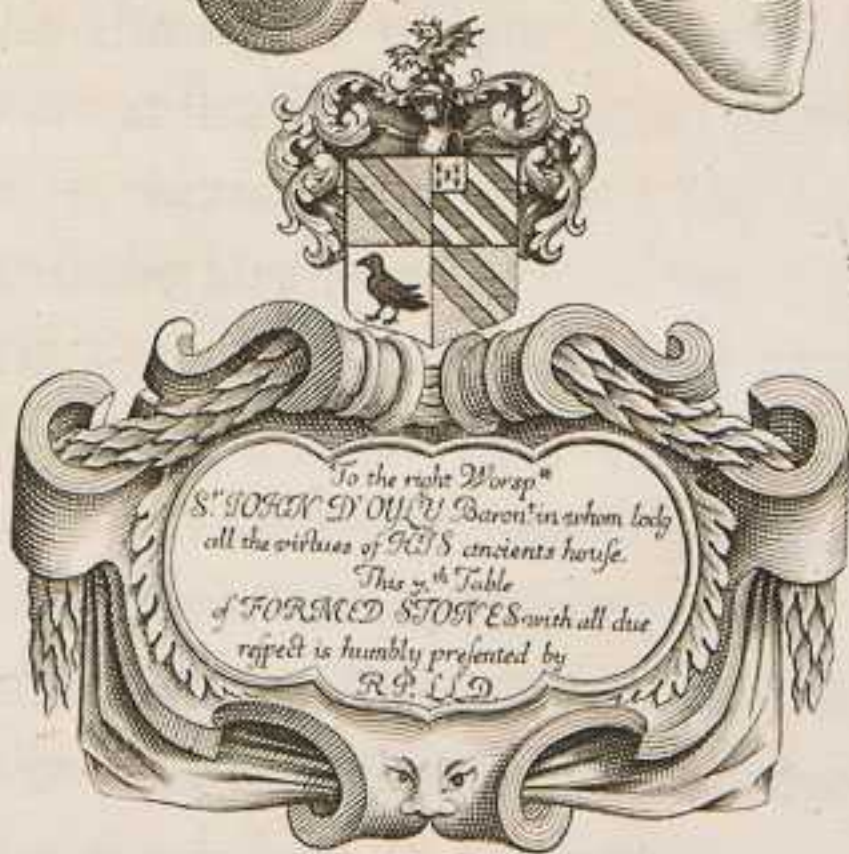 To the right Worsp^ll
S^r. IOHN D'OYLY Baron^t. in whom lodg
all the virtues of HIS ancients house.
This 7.^th Table
of FORMED STONES with all due
respect is humbly presented by
R.P. LLD